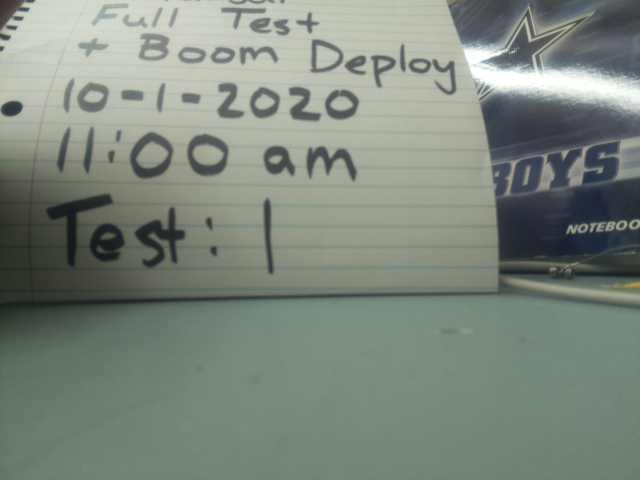 Full Test
+ Boom Deploy
10-1-2020
11:00 am
Test: 1
BOYS
NOTEBOO